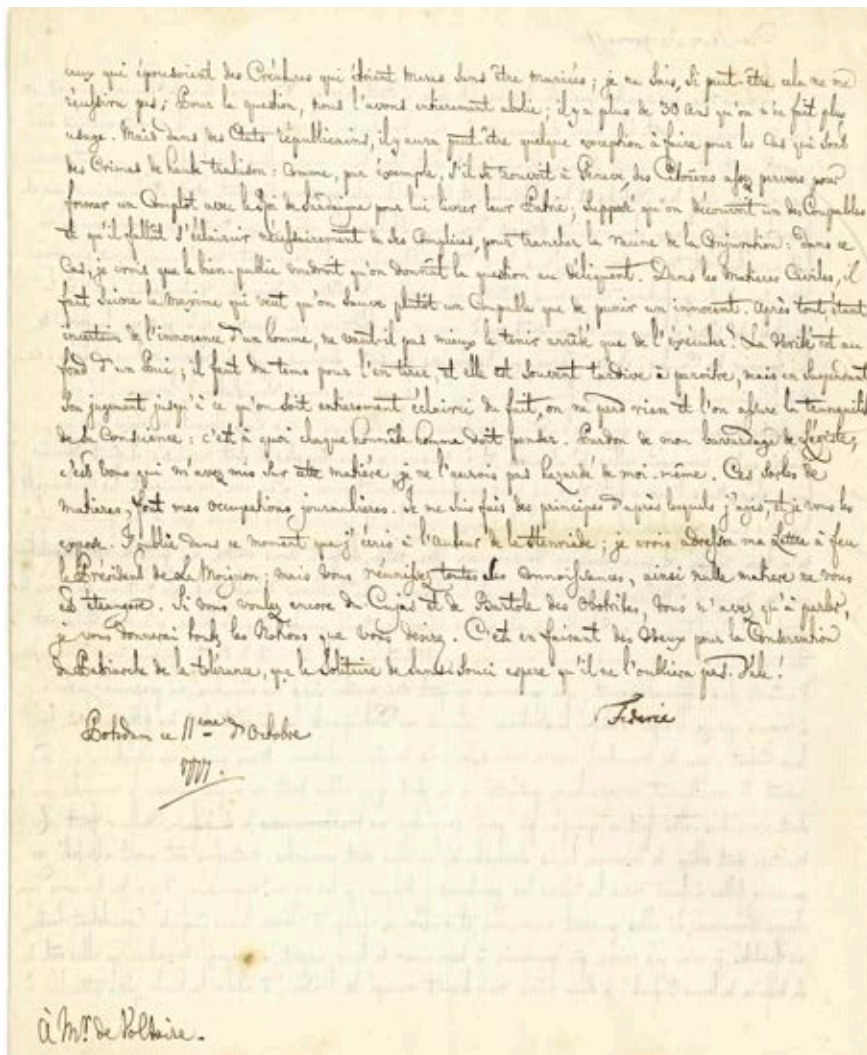 ceux qui épousoient des Créatures qui étoient Meres sans être mariées ; je ne sais, si peut-être cela ne me
réussiron pas ; Pour la question, nous l'avons entierement abolie ; il y a plus de 30 Ans qu'on n'en fait plus
usage. Mais dans des Etats républicains, il y aura peut-être quelque exception à faire pour les Cas qui sont
des Crimes de haute trahison : comme, par éxemple, s'il se trouvoit à Geneve, des Citoïens assez pervers pour
former un Complot avec le Roi de Sardaigne pour lui livrer leur Patrie ; supposé qu'on découvrit un des Coupables
et qu'il fallût s'éclaircir nécessairement de ses Complices, pour trancher la racine de la Conjuration : dans ce
Cas, je crois que le bien-public voudroit qu'on donnât la question au déliquent. Dans les Matieres Civiles, il
faut suivre la Maxime qui veut qu'on sauve plûtôt un Coupable que de punir un innocent. Après tout étant
incertain de l'innocence d'un homme, ne vaut-il pas mieux le tenir arrêté que de l'éxécuter? La Vérité est au
fond d'un Puis ; il faut du tems pour l'en tirer, et elle est souvent tardive à paroître, mais en suspendant
son jugement jusqu'à ce qu'on soit entierement éclairci du fait, on ne perd rien et l'on assure la tranquilité
de sa Conscience : c'est à quoi chaque honnête homme doit penser. Pardon de mon bavardage de Légiste ;
c'est Vous qui m'avez mis sur cette matiére, je ne l'aurois pas hazardé de moi-même. Ces sortes de
matieres, font mes occupations journalieres. Je me suis fais des principes d'après lesquels j'agis, et je vous les
expose. J'oublie dans ce moment que j'écris à l'Auteur de la Henriade ; je crois adresser ma Lettre à feu
le Président de La Moignon ; mais vous réunissez toutes les connoissances, ainsi nulle matiere ne vous
est étrangere. Si vous voulez encore du Cujas et de Bartole des Obotrites, vous n'avez qu'à parler,
je vous donnerai toutes les Notions que vous désirez. C'est en faisant des Voeux pour la Conservation
du Patriarche de la tolérance, que le Solitaire de Sans-Souci espere qu'il ne l'oubliera pas. Vale !
Federic
Potsdam ce 11eme d'Octobre
1777.
à Mr. de Voltaire.